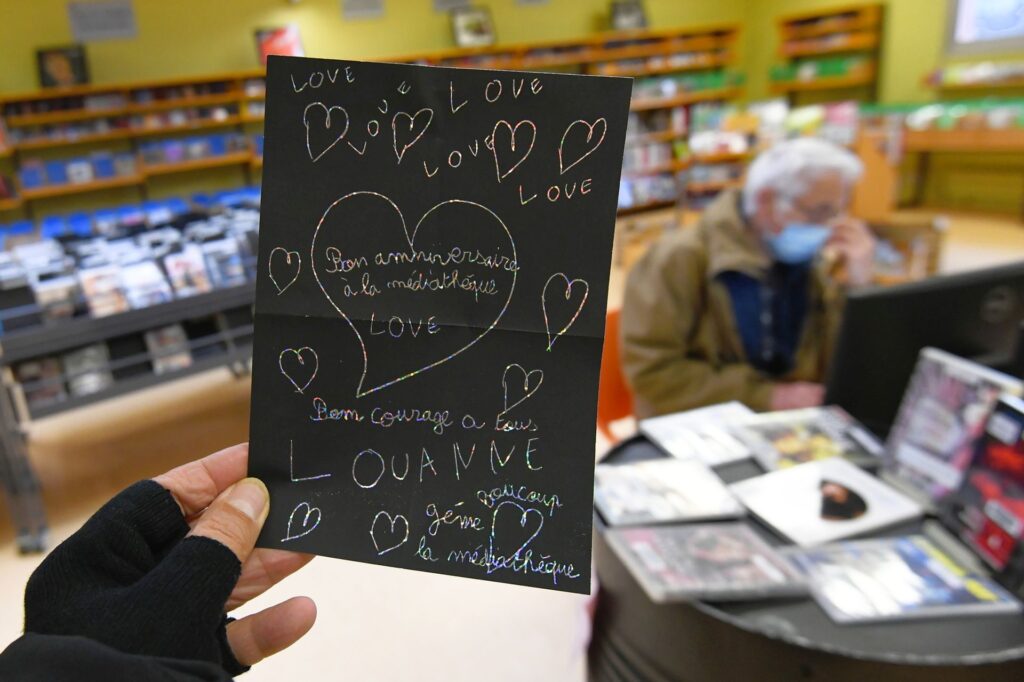 LOVE
LOVE
LOVE
LOVE
LOVE
Bon anniversaire
à la médiathèque
LOVE
Bon courage a tous
LOUANNE
gème boucoup
la médiathèque